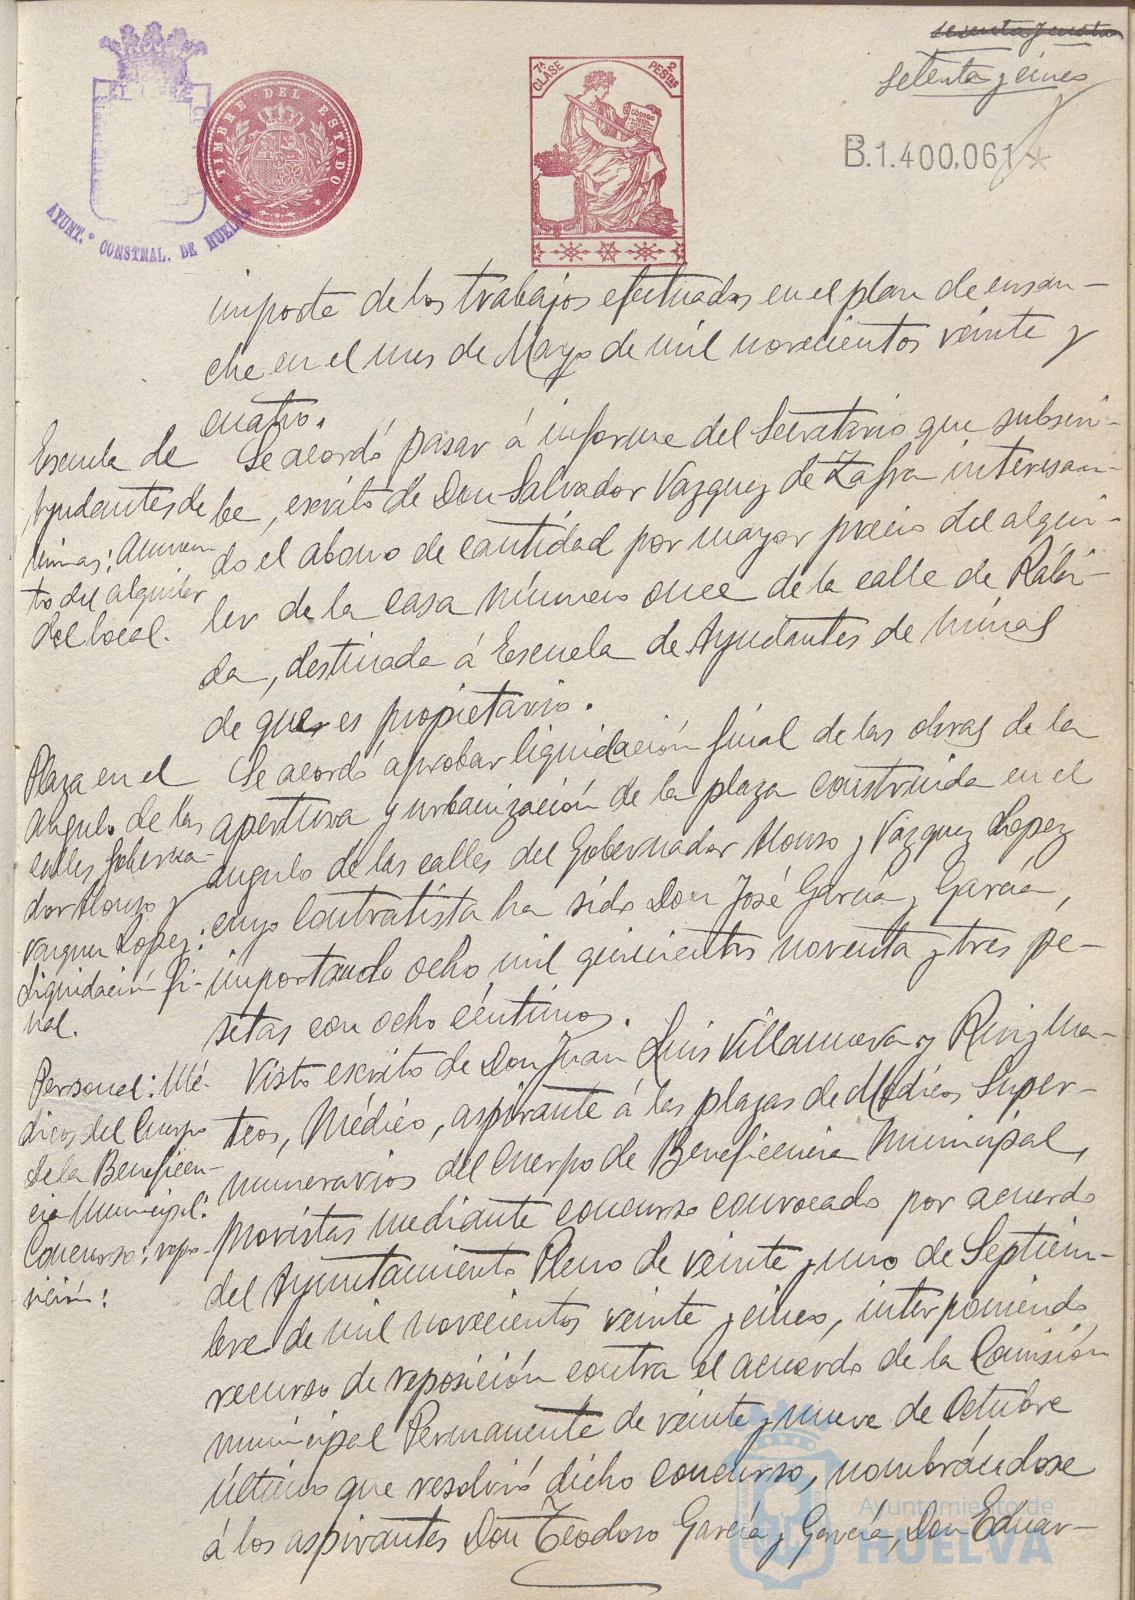 setenta y cinco
B.1.400,061
7ª CLASE
2 PESTAS
CÓDIGO
TIMBRE DEL ESTADO
AYUNT.º CONSTNAL. DE HUELVA
importe de los trabajos efectuados en el plan de ensan-
che en el mes de Mayo de mil novecientos veinte y
cuatro.
Escuela de
Ayudantes de
Minas: Aumen
to del alquiler
del local.
Se acordó pasar á informe del Secretario que subscri-
be, escrito de Don Salvador Vazquez de Zafra interesan-
do el abono de cantidad por mayor precio del alqui-
ler de la casa número once de la calle de Rábi-
da, destinada á Escuela de Ayudantes de Minas
de que es propietario.
Plaza en el
angulo de las
calles Goberna-
dor Alonso y
Vazquez Lopez:
Liquidación fi-
nal.
Se acordó aprobar liquidación final de las obras de la
apertura y urbanización de la plaza construida en el
angulo de las calles del Gobernador Alonso y Vazquez Lopez
cuyo Contratista ha sido Don José García y García,
importando ocho mil quinientas noventa y tres pe-
setas con ocho céntimos.
Personal: Mé-
dicos del Cuerpo
de la Beneficen-
cia Municipal:
Concurso: repo-
sición:
Visto escrito de Don Juan Luis Villanueva y Ruiz Ma-
teos, Médico, aspirante á las plazas de Médicos Super-
numerarios del Cuerpo de Beneficencia Municipal,
provistas mediante concurso convocado por acuerdo
del Ayuntamiento Pleno de veinte y uno de Septiem-
bre de mil novecientos veinte y cinco, interponiendo
recurso de reposición contra el acuerdo de la Comisión
municipal Permanente de veinte y nueve de Octubre
último que resolvió dicho concurso, nombrándose
á los aspirantes Don Teodoro García y García, Don Eduar-
Ayuntamiento de
HUELVA